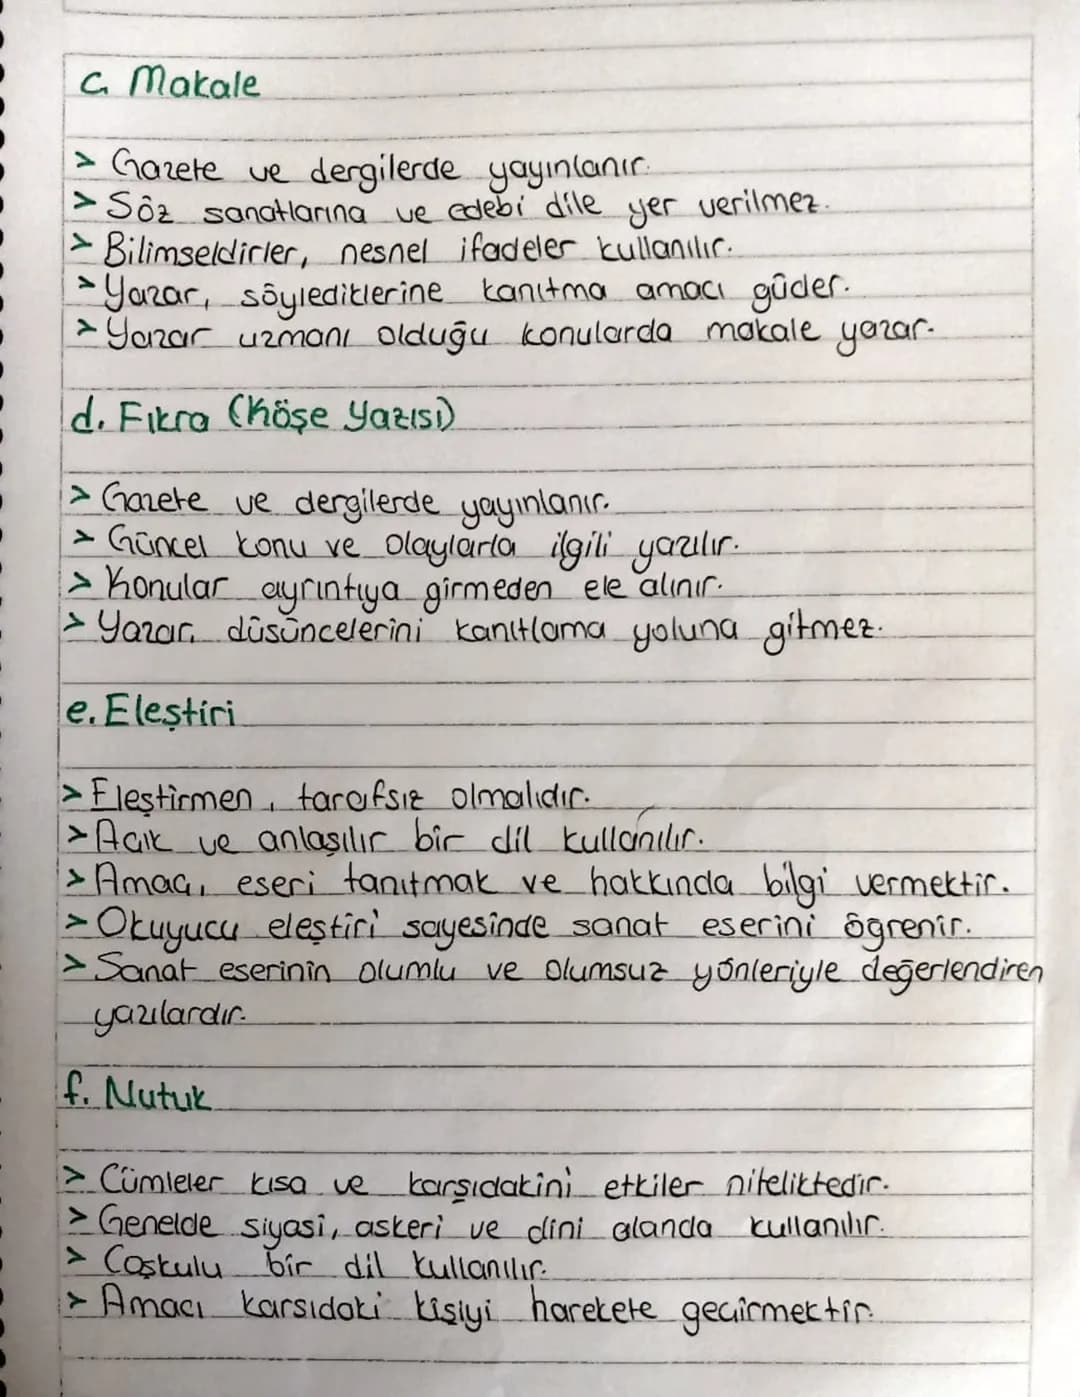 c. Makale
> Gazete ve dergilerde yayınlanır.
> Söz sanatlarına ve edebi dile yer verilmez.
> Bilimseldirler, nesnel ifadeler kullanılır.
> Yazar, söylediklerine kanıtma amacı güder.
> Yazar uzmanı olduğu konularda makale yazar.
d. Fıkra (Köşe Yazısı)
> Gazete ve dergilerde yayınlanır.
> Güncel konu ve olaylarla ilgili yazılır.
> Konular ayrıntıya girmeden ele alınır.
> Yazar, düsüncelerini kanıtlama yoluna gitmez.
e. Eleştiri
> Eleştirmen, tarafsız olmalıdır.
> Açık ve anlaşılır bir dil kullanılır.
> Amacı, eseri tanıtmak ve hakkında bilgi vermektir.
> Okuyucu eleştiri sayesinde sanat eserini öğrenir.
> Sanat eserinin olumlu ve olumsuz yönleriyle değerlendiren
yazılardır.
f. Nutuk
> Cümleler kısa ve karşıdakini etkiler niteliktedir.
> Genelde siyasi, askeri ve dini alanda kullanılır.
> Coşkulu bir dil kullanılır.
> Amacı karsıdaki kişiyi harekete geçirmektir.